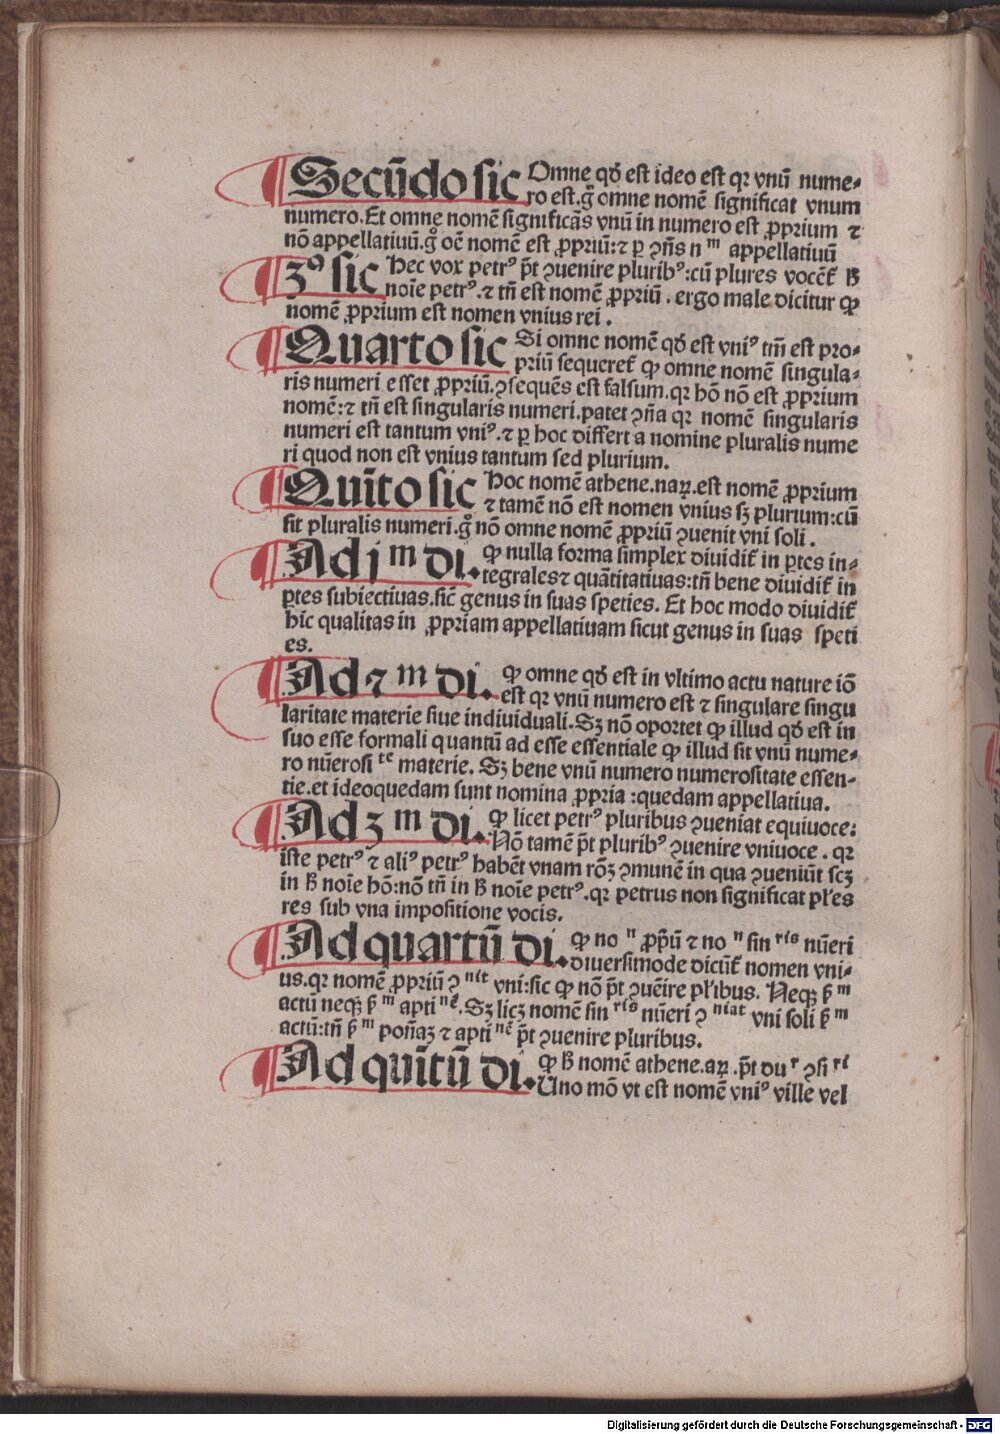 Secūdo sic Omne qd̄ est ideo est qꝛ vnū nume-
ro est.gͦ omne nomē significat vnum
numero.Et omne nomē significās vnū in numero est ꝓprium ⁊
nō appellatiuū.gͦ oē nomē est ꝓpriū:⁊ ꝑ ꝯn̄s n ᵐ appellatiuū
3ꝰ sic Hec vox petrꝰ p̄t ꝯuenire pluribꝰ:cū plures vocēt̄ ꝟ
noīe petrꝰ.⁊ tn̄ est nomē ꝓpriū . ergo male dicitur ꝙ
nomē ꝓprium est nomen vnius rei .
Quarto sic Si omne nomē qd̄ est vniꝰ tm̄ est pro-
priū sequeret̄ ꝙ omne nomē singula-
ris numeri esset ꝓpriū.ꝯsequēs est falsum.qꝛ hō nō est ꝓprium
nomē:⁊ tn̄ est singularis numeri.patet ꝯn̄a qꝛ nomē singularis
numeri est tantum vniꝰ.⁊ ꝑ hoc differt a nomine pluralis nume
ri quod non est vnius tantum sed plurium.
Quīto sic Hoc nomē athene.naꝝ.est nomē ꝓprium
⁊ tamē nō est nomen vnius sꝫ plurium:cū
sit pluralis numeri.gͦ nō omne nomē ꝓpriū ꝯuenit vni soli .
Ad j ᵐ di. ꝙ nulla forma simplex diuidit̄ in ꝑtes in-
tegrales⁊ quātitatiuas:tn̄ bene diuidit̄ in
ꝑtes subiectiuas.sic̄ genus in suas speties. Et hoc modo diuidit̄
hic qualitas in ꝓpriam appellatiuam sicut genus in suas speti
es.
Ad 2 ᵐ di. ꝙ omne qd̄ est in vltimo actu nature iō
est qꝛ vnū numero est ⁊ singulare singu
laritate materie siue indiuiduali.Sꝫ nō oportet ꝙ illud qd̄ est in
suo esse formali quantū ad esse essentiale ꝙ illud sit vnū nume-
ro nūerosi ᵗᵉ materie. Sꝫ bene vnū numero numerositate essen-
tie.et ideoquedam sunt nomina ꝓpria :quedam appellatiua.
Ad 3 ᵐ di. ꝙ licet petrꝰ pluribus ꝯueniat equiuoce:
Nō tamē p̄t pluribꝰ ꝯuenire vniuoce . qꝛ
iste petrꝰ ⁊ aliꝰ petrꝰ habēt vnam rōꝫ ꝯmunē in qua ꝯueniūt scꝫ
in ꝟ noīe hō:nō tn̄ in ꝟ noīe petrꝰ.qꝛ petrus non significat pl̄es
res sub vna impositione vocis.
Ad quartū di. ꝙ no ⁿ ꝓpū ⁊ no ⁿ sin ʳⁱˢ nūeri
diuersimode dicūt̄ nomen vni-
us.qꝛ nomē ꝓpriū ꝯ ⁿⁱᵗ vni:sic ꝙ nō p̄t ꝯuēire pl̄ibus. Neqꝫ p̄ ᵐ
actū neqꝫ p̄ ᵐ apti ⁿᵉ̄. Sꝫ licꝫ nomē sin ʳⁱˢ nūeri ꝯ ⁿⁱᵃᵗ vni soli p̄ ᵐ
actū:tn̄ p̄ ᵐ pon̄aꝫ ⁊ apti ⁿᵉ̄ p̄t ꝯuenire pluribus.
Ad quītū di. ꝙ ꝟ nomē athene.aꝝ .p̄t du ʳ ꝯsi ʳⁱ
Uno mō vt est nomē vniꝰ ville vel
Digitalisierung gefördert durch die Deutsche Forschungsgemeinschaft - DFG